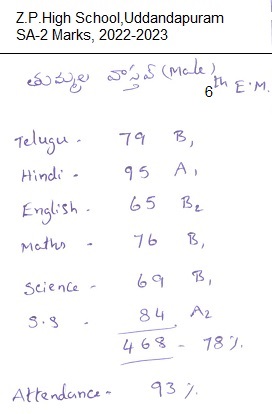 Z.P.High School,Uddandapuram
SA-2 Marks, 2022-2023
తుమ్మల వాస్తవ్ (Male)
6th E.M.
Telugu - 79 B1
Hindi - 95 A1
English - 65 B2
Maths - 76 B1
Science - 69 B1
S.S - 84 A2
468 - 78%
Attendance - 93%